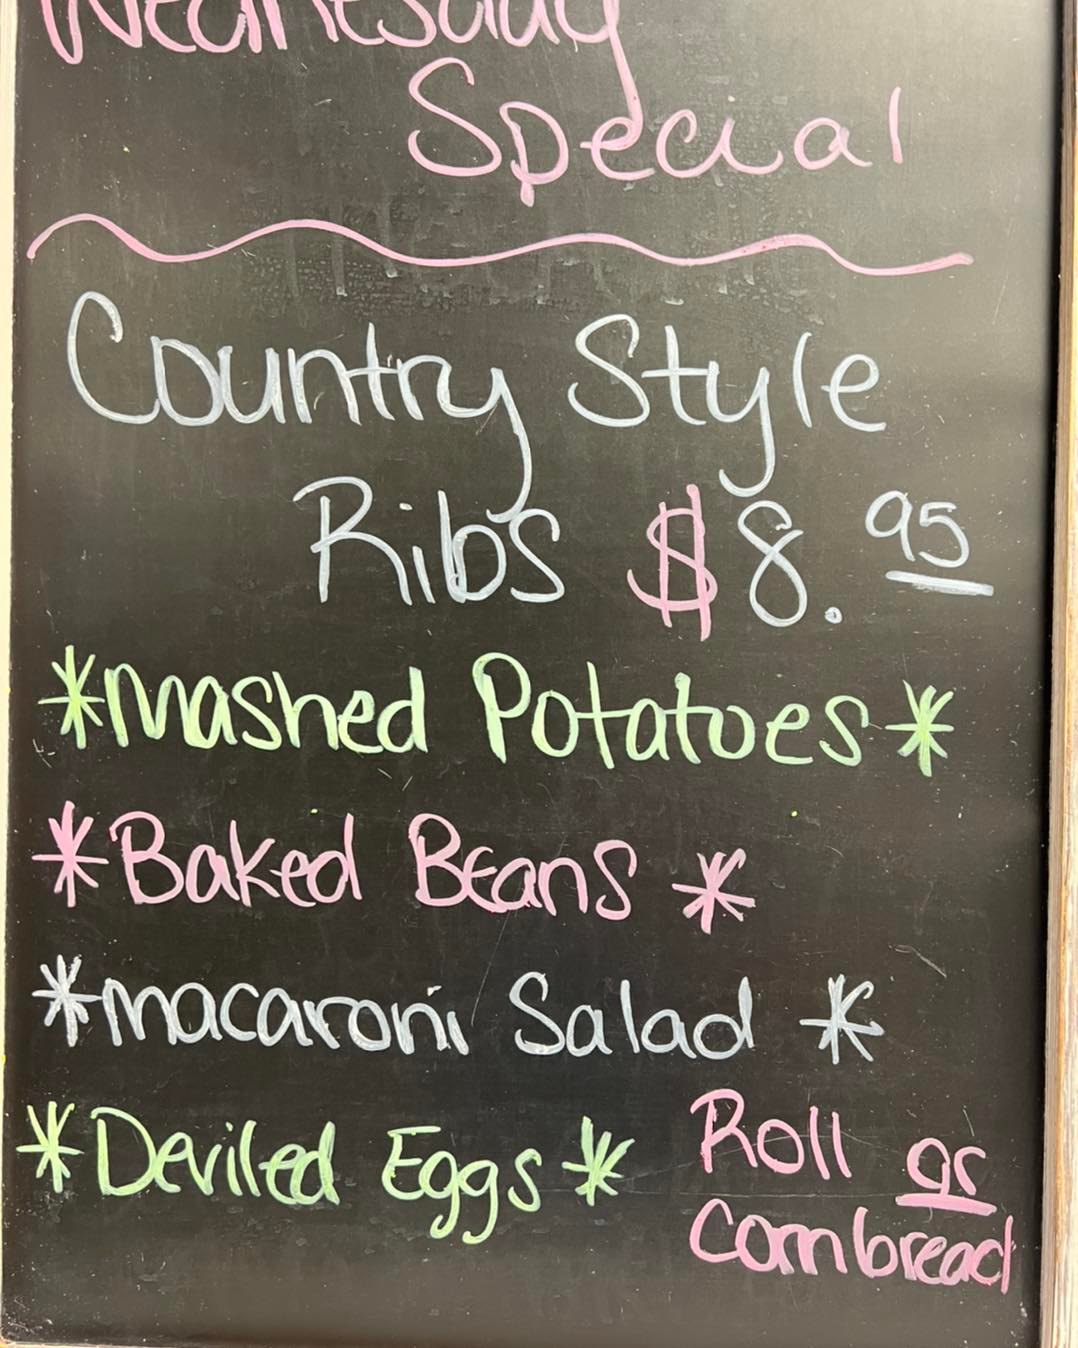 Wednesday
Special
Country Style
Ribs $8.95
*Mashed Potatoes*
*Baked Beans *
*macaroni Salad *
*Deviled Eggs*
Roll or
Cornbread